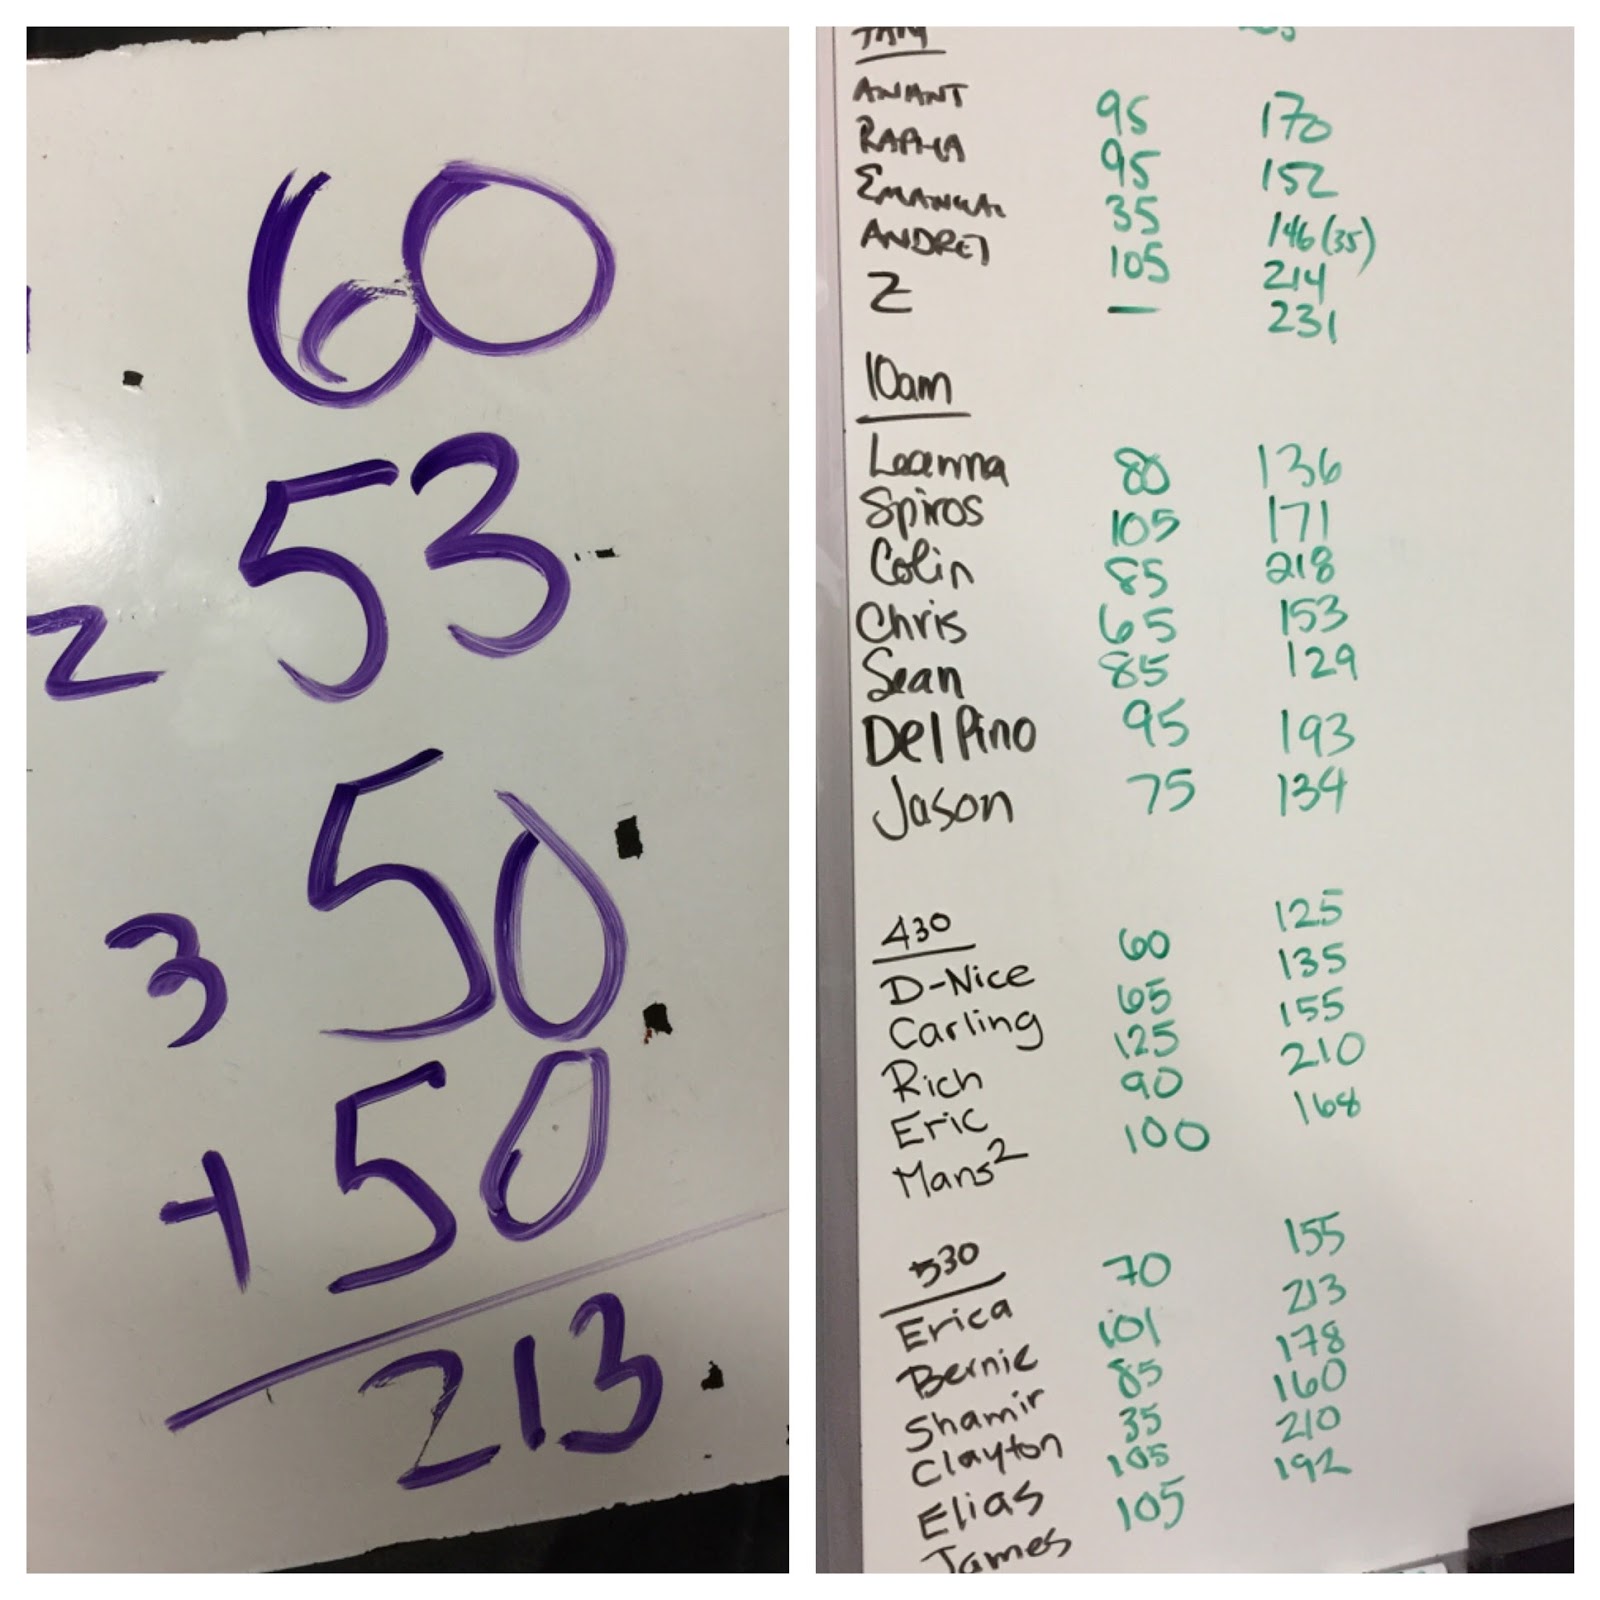 60
2 53
3 50
+50
213
ANANT 95 170
RAPHA 95 152
35 146(35)
105 214
Z — 231
10am
Leanna 80 136
Spiros 105 171
Colin 85 218
Chris 65 153
Sean 85 129
Del Pino 95 193
Jason 75 134
430
D-Nice 60 125
Carling 65 135
Rich 125 155
Eric 90 210
Mans² 100 168
530
Erica 70 155
Bernie 101 213
Shamir 85 178
Clayton 35 160
Elias 105 210
James 105 192